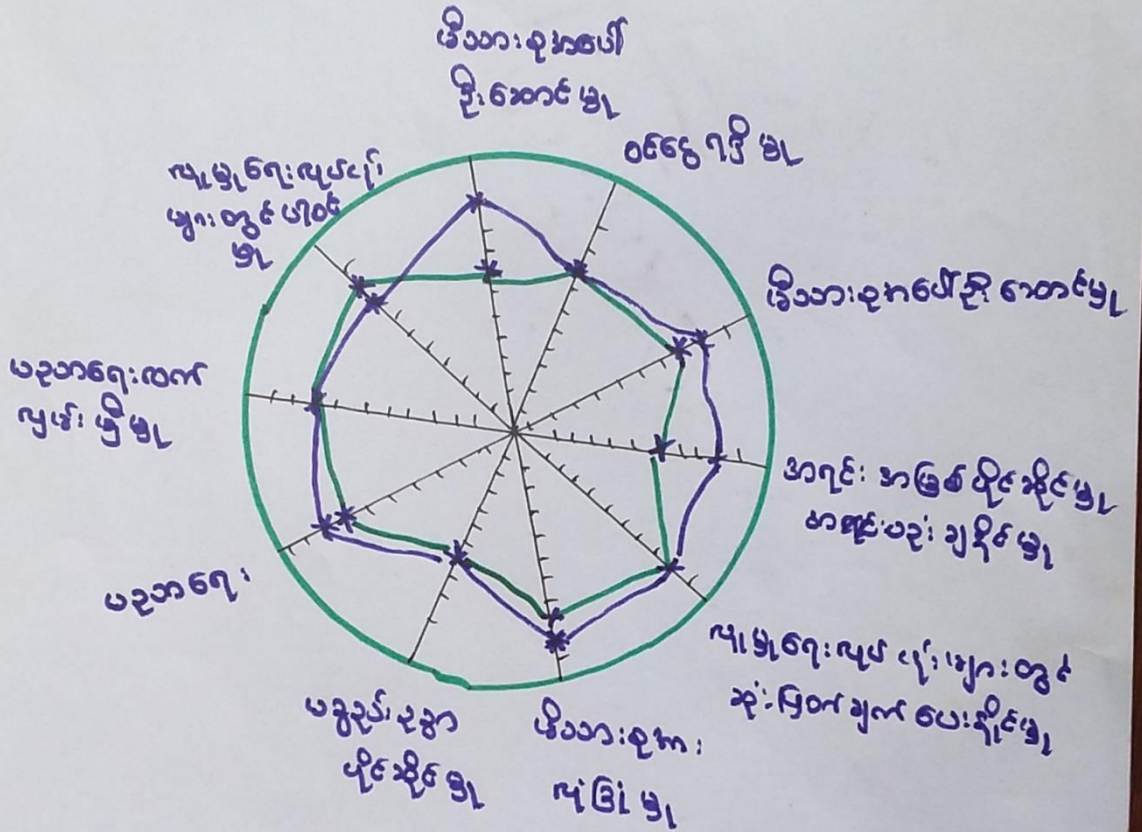 မိသားစုအပေါ်
ဦးဆောင်မှု
ဝင်ငွေရှိမှု
မိသားစုအပေါ်ဦးဆောင်မှု
အရင်းအမြစ်ပိုင်ဆိုင်မှု
ချနိုင်မှု
လူမှုရေးလုပ်ငန်းများတွင်
ဆုံးဖြတ်ချက်ပေးနိုင်မှု
မိသားစုအား
လုံခြုံမှု
ပစ္စည်းဥစ္စာ
ပိုင်ဆိုင်မှု
ပညာရေး
ပညာရေးလက်
လှမ်းမှီမှု
လူမှုရေးလုပ်ငန်း
များတွင်ပါဝင်
မှု